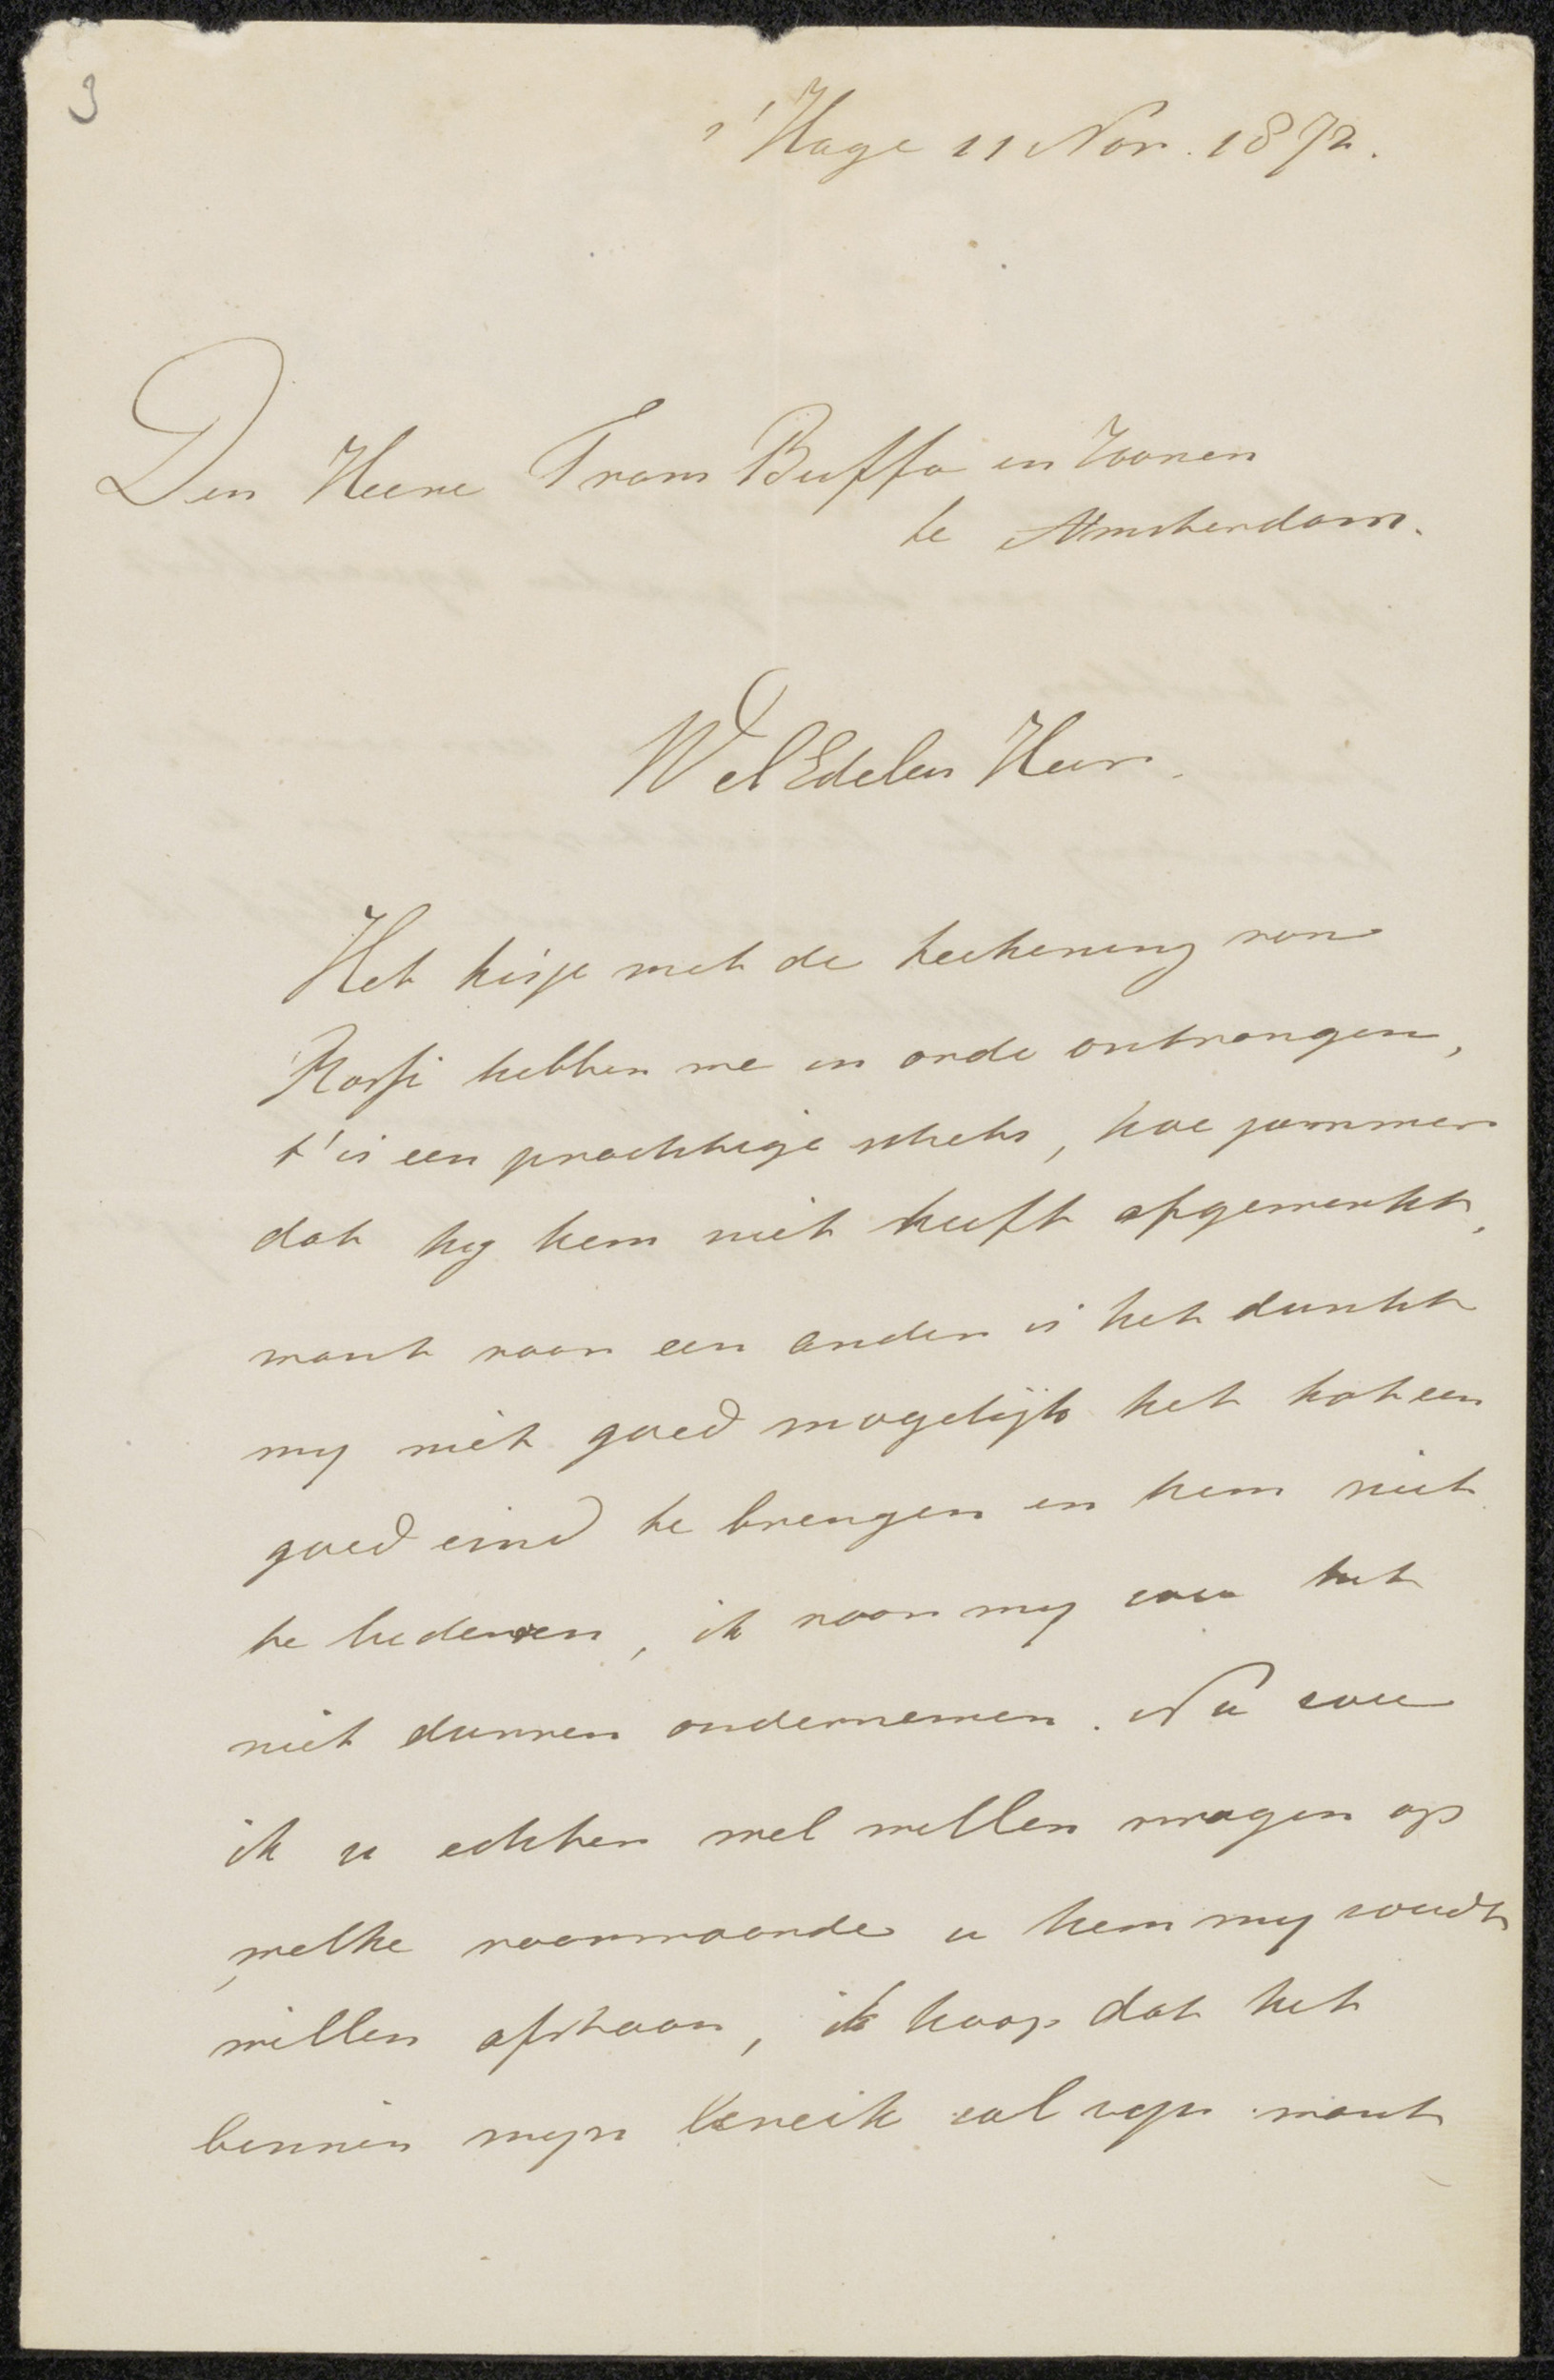 3
s'Hage 11 Nov. 1872.
Den Heere Frans Buffa en Zoonen
te Amsterdam.
WelEdelen Heer.
Het kisje met de teekening van
Rossi hebben we in orde ontvangen,
t'is een prachtige schets, hoe jammer
dat hy hem niet heeft afgewerkt,
want voor een ander is het dunkt
my niet goed mogelijk het tot een
goed eind te brengen en hem niet
te bederven, ik voor my zou het
niet durven ondernemen. Nu zou
ik u echter wel willen vragen op
welke voorwaarde u hem my zoudt
willen afstaan, ik hoop dat het
binnen myn bereik zal zyn want